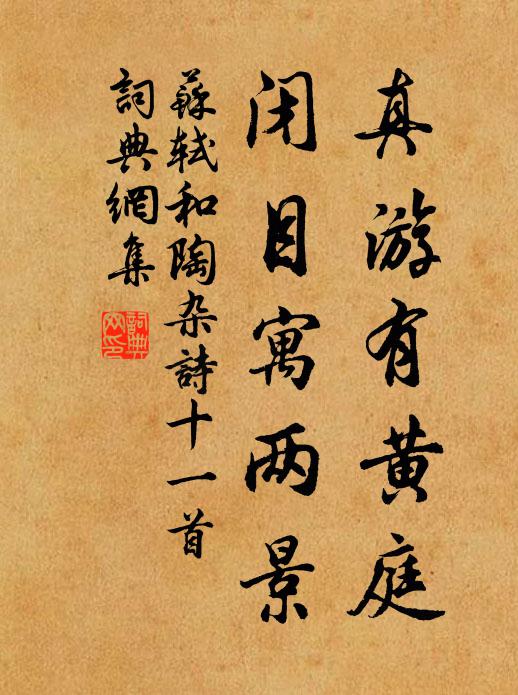 真游有黄庭
闭目寓两景
蘇軾和陶杂詩十一首
詞典網集
詞典网印